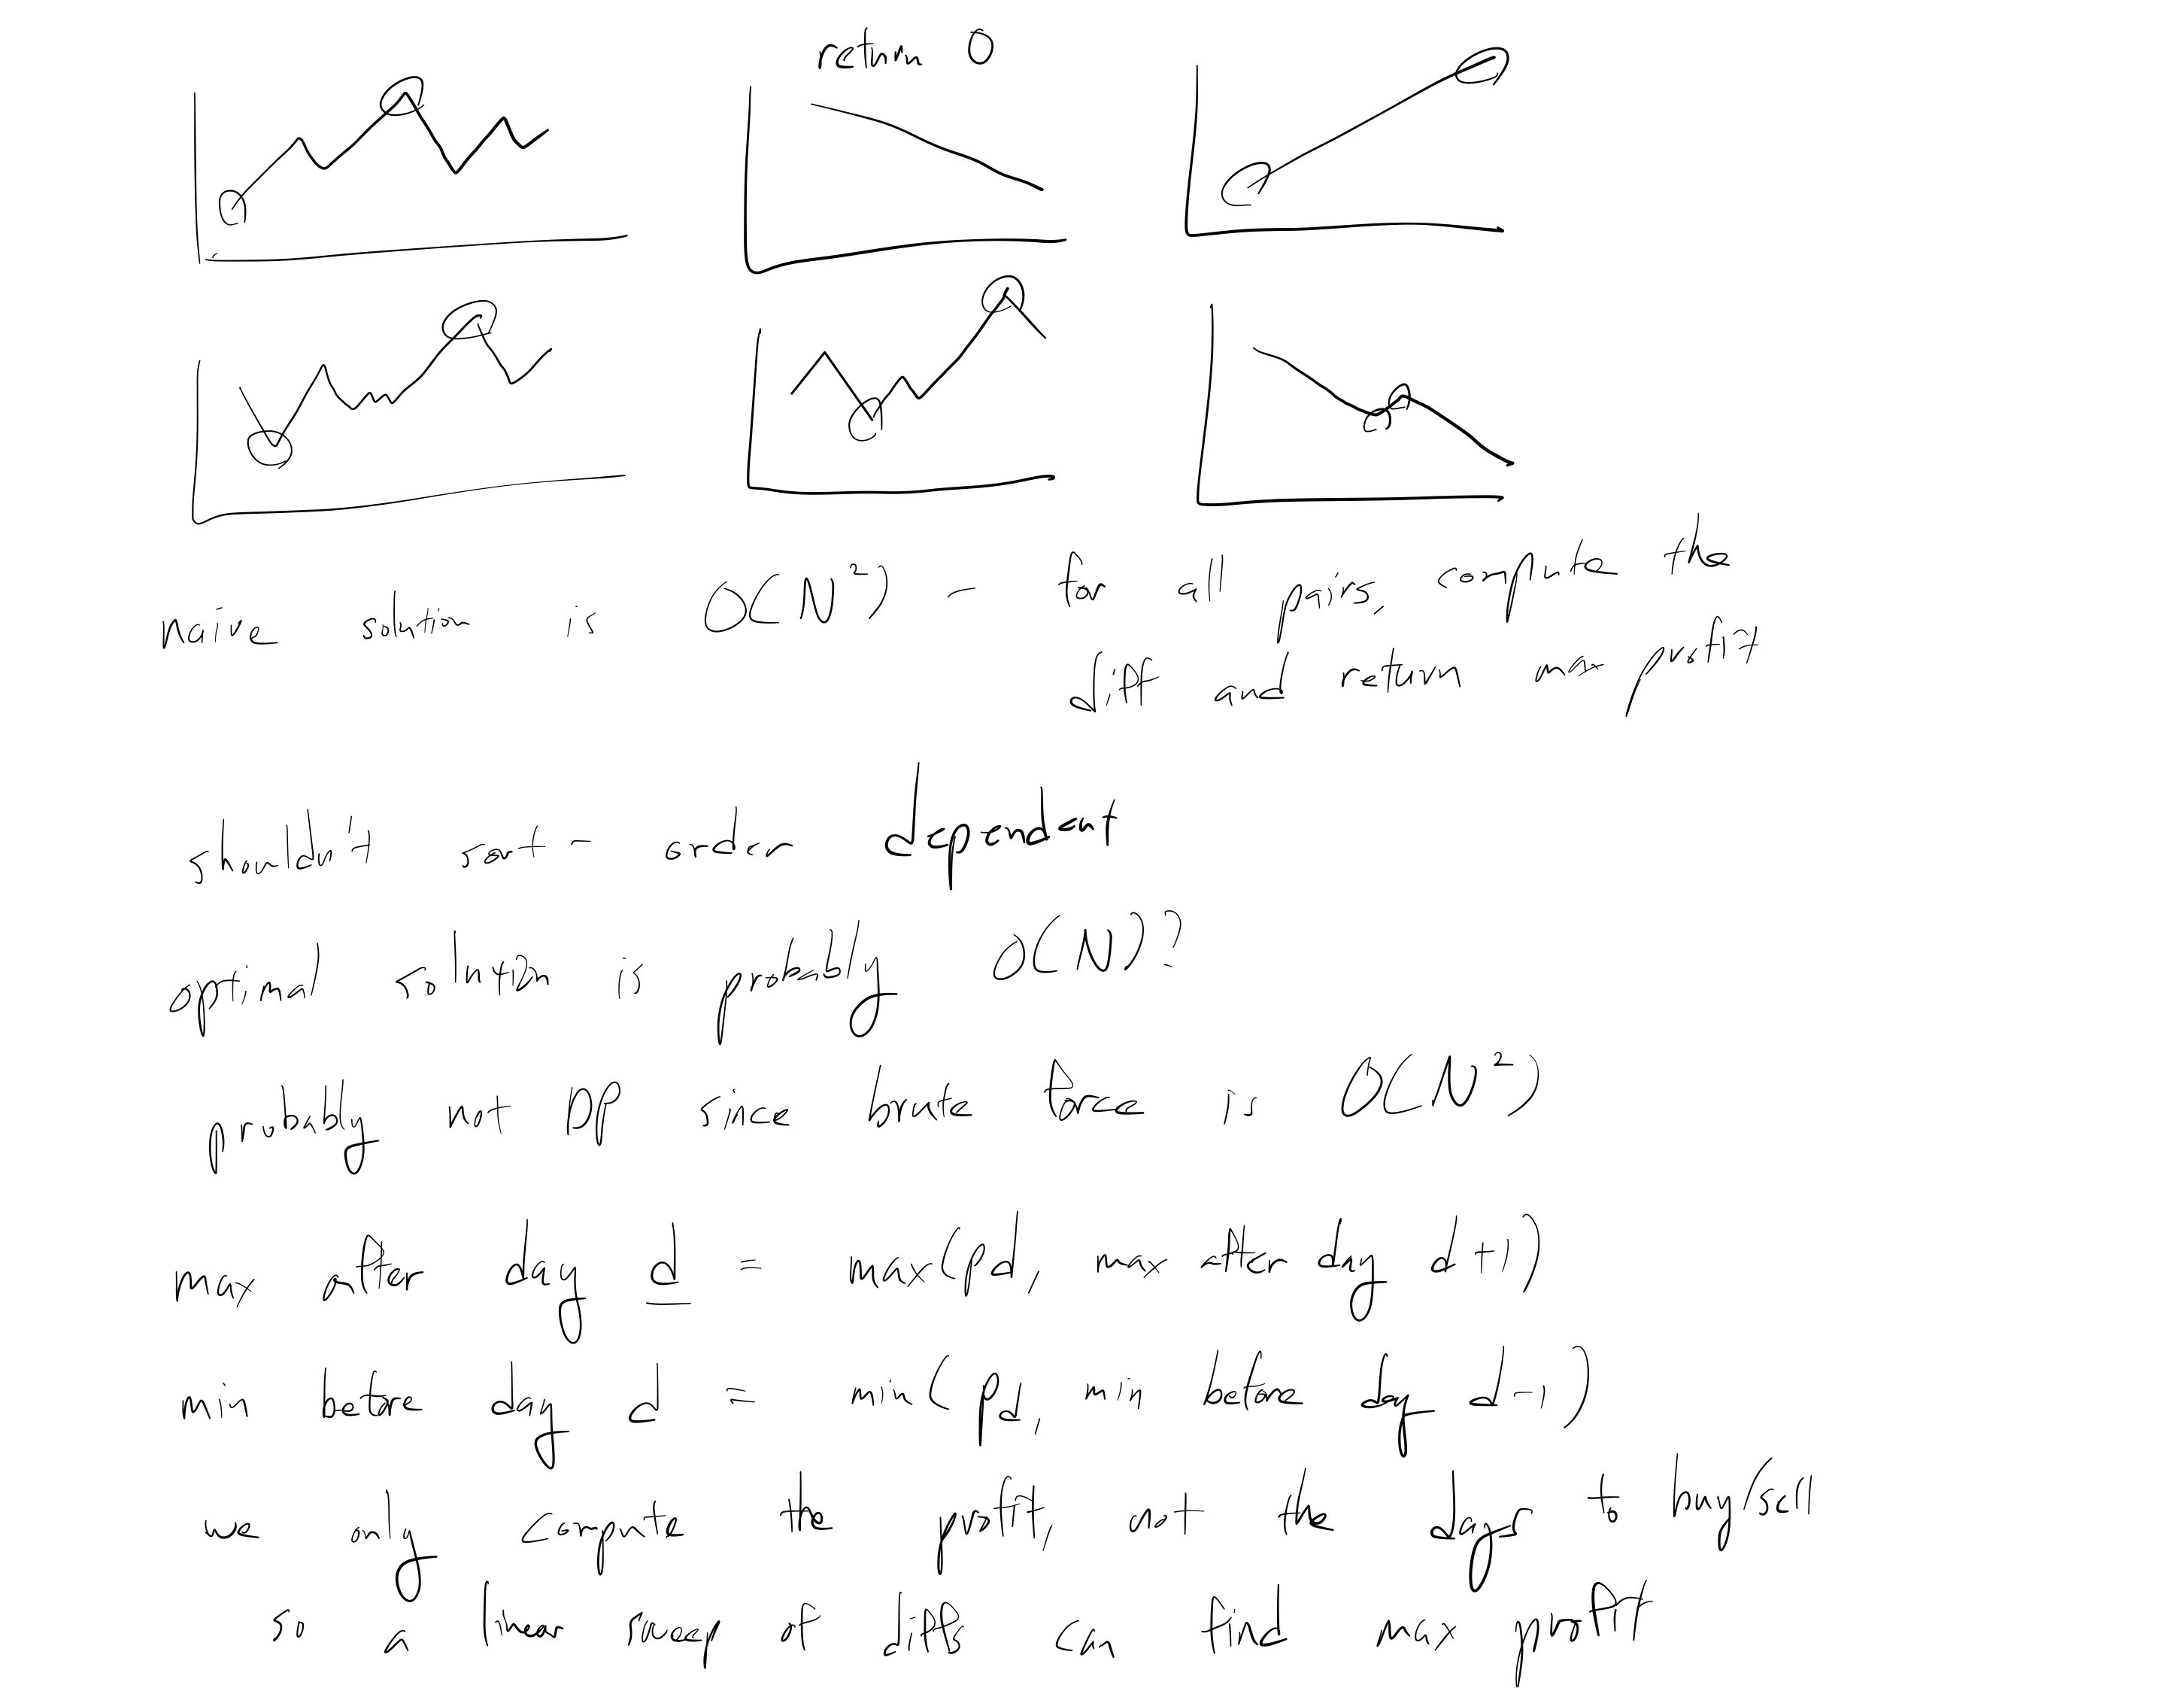 return 0
naive solution is O(N²) - for all pairs, compute the
diff and return max profit
shouldn't sort - order dependent
optimal solution is probably O(N)?
probably not DP since brute force is O(N²)
max after day d = max(pd, max after day d+1)
min before day d = min(pd, min before day d-1)
we only compute the profit, not the days to buy/sell
so a linear sweep of diffs can find max profit